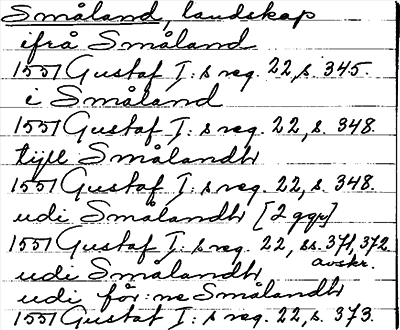 Småland, landskap
ifrå Småland
1551 Gustaf I:s reg. 22, s. 345.
i Småland
1551 Gustaf I:s reg. 22, s. 348.
tijll Smålandh
1551 Gustaf I:s reg. 22, s. 348.
udi Smålandh [2 ggr]
1551 Gustaf I:s reg. 22, ss. 371, 372
avskr.
udi Smålandh
udi för:ne Smålandh
1551 Gustaf I:s reg. 22, s. 373.